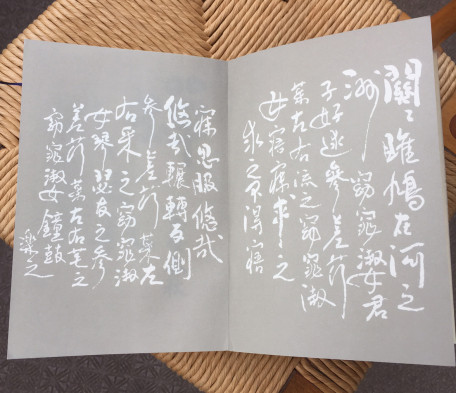 關〻雎鳩在河之
洲窈窕淑女君
子好逑參差荇
菜左右流之窈窕淑
女寤寐求之
求之不得寤
寐思服悠哉
悠哉輾轉反側
參差荇菜左
右采之窈窕淑
女琴瑟友之參
差荇菜左右芼之
窈窕淑女鐘鼓
樂之